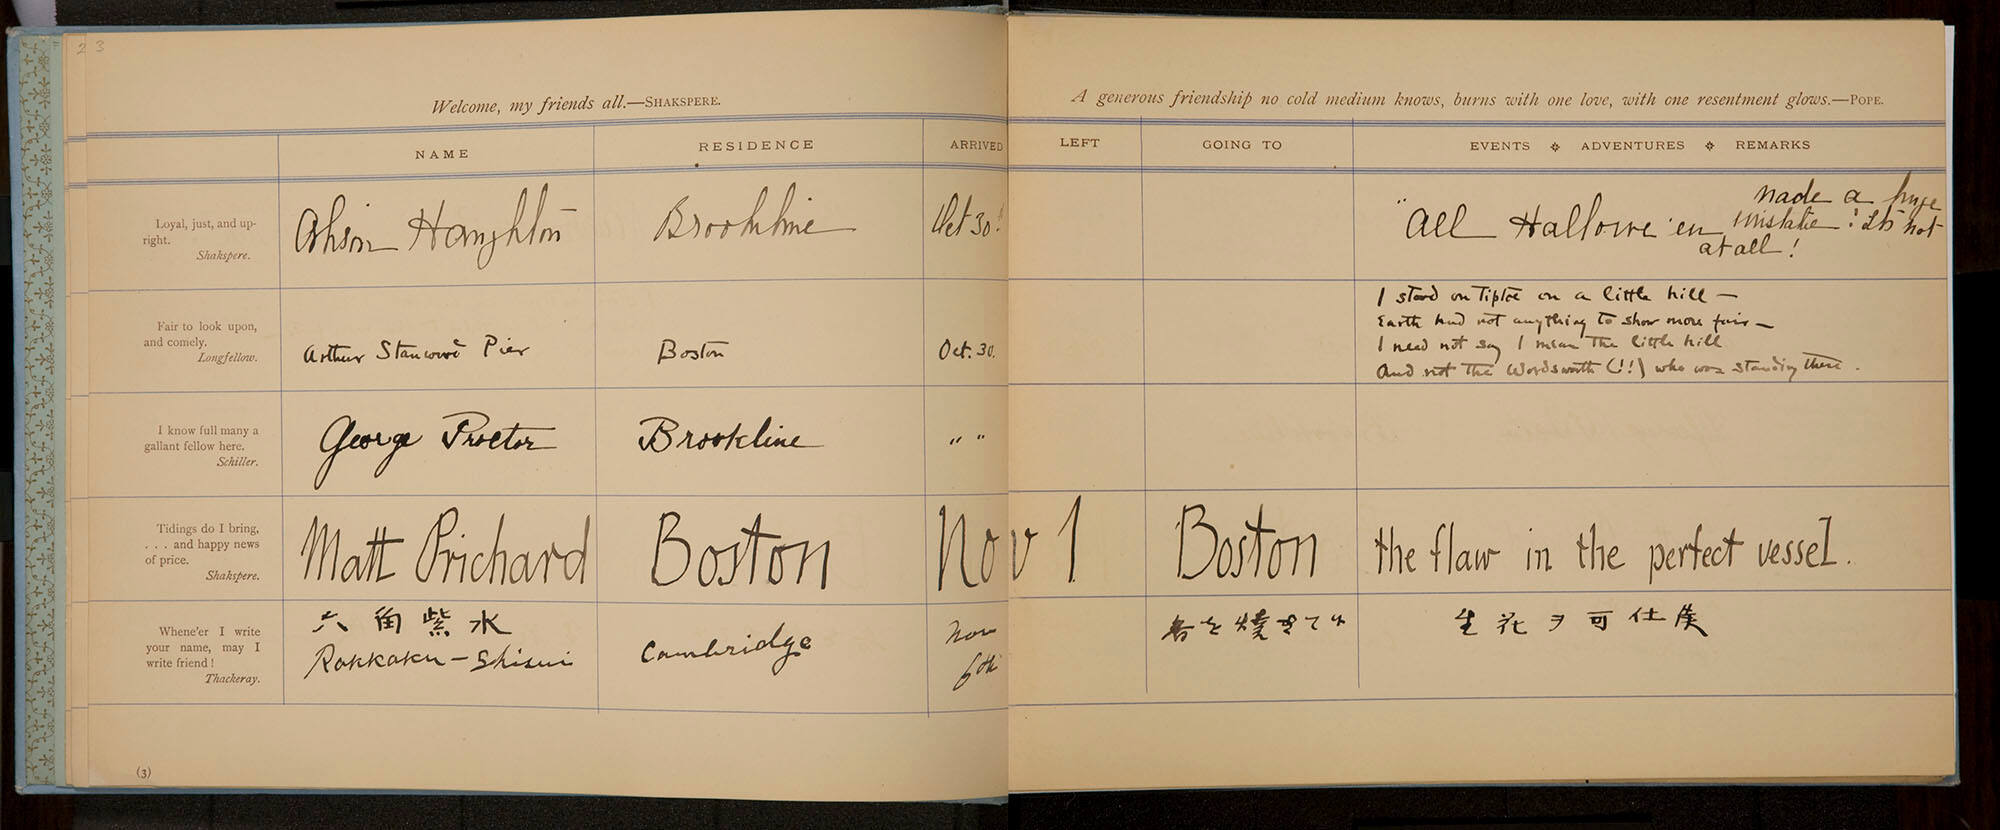 2 3
Welcome, my friends all.—SHAKSPERE.
NAME
RESIDENCE
ARRIVED
Loyal, just, and up-
right.
Shakspere.
Haughton
Brookline
Oct 30
Fair to look upon,
and comely.
Longfellow.
Arthur Stanwood Pier
Boston
Oct. 30.
I know full many a
gallant fellow here.
Schiller.
George Proctor
Brookline
" "
Tidings do I bring,
. . . and happy news
of price.
Shakspere.
Matt Prichard
Boston
Nov 1
Whene'er I write
your name, may I
write friend!
Thackeray.
六角紫水
Rokkaku-Shisui
Cambridge
Nov
6th
(3)
A generous friendship no cold medium knows, burns with one love, with one resentment glows.—POPE.
LEFT
GOING TO
EVENTS ADVENTURES REMARKS
All Hallowe'en
made a huge
mistake! It's not
at all!
I stood on tiptoe on a little hill —
Earth had not anything to show more fair —
I need not say I mean the little hill
And not the Wordsworth (!!) who was standing there.
Boston
the flaw in the perfect vessel.
生花ヲ可仕候